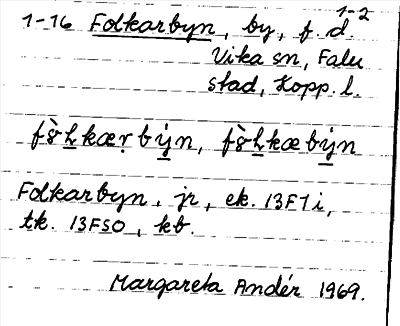 1-2
1-16 Folkarbyn, by, f.d.
Vika sn, Falu
stad, Kopp. l.
Folkarbyn, jr, ek. 13F7i,
tk. 13FSO, kb.
Margareta Andér 1969.